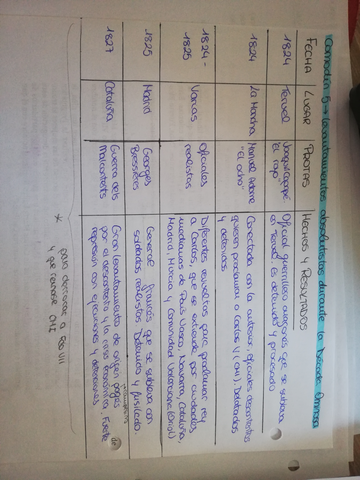 Comodín 5 → levantamientos absolutistas durante la Década Ominosa
FECHA LUGAR PROTAS HECHOS Y RESULTADOS
1824 Teruel Joaquín Capapé
"El rayo"
Oficial guerrillero aragonés que se subleva
en Teruel. Es detenido y procesado
1824 La Mancha Manuel Adame
"El Locho"
Conectado con la anterior, oficiales descontentos
quieren proclamar a Carlos V (CMI). Detectados
y detenidos
1824 -
1825
Varios Oficiales
realistas
Diferentes revueltas para proclamar rey
a Carlos, que se extiende por ciudades
de País Vasco, Navarra, Cataluña,
Madrid, Murcia y Comunidad Valenciana
1825 Madrid Georges
Bessières
General francés que se subleva con
soldados realistas. Detenido y fusilado.
1827 Cataluña Guerra dels
Malcontents
Gran levantamiento de origen
por el descontento y la crisis económica. Fuerte
represión con ejecuciones y detenciones
* para derrocar a Fdo VII
y que reinase CMI